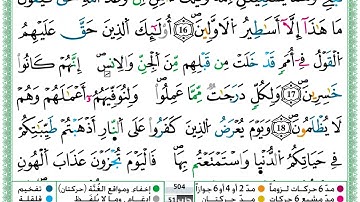 مَا هَٰذَآ إِلَّآ أَسَٰطِيرُ ٱلْأَوَّلِينَ ١٦ أُو۟لَٰٓئِكَ ٱلَّذِينَ حَقَّ عَلَيْهِمُ
ٱلْقَوْلُ فِىٓ أُمَمٍ قَدْ خَلَتْ مِن قَبْلِهِم مِّنَ ٱلْجِنِّ وَٱلْإِنسِ إِنَّهُمْ كَانُوا۟
خَٰسِرِينَ ١٧ وَلِكُلٍّ دَرَجَٰتٌ مِّمَّا عَمِلُوا۟ وَلِنُوَفِّيَهُمْ أَعْمَٰلَهُمْ وَهُمْ
لَا يُظْلَمُونَ ١٨ وَيَوْمَ يُعْرَضُ ٱلَّذِينَ كَفَرُوا۟ عَلَى ٱلنَّارِ أَذْهَبْتُمْ طَيِّبَٰتِكُمْ
فِى حَيَاتِكُمُ ٱلدُّنْيَا وَٱسْتَمْتَعْتُم بِهَا فَٱلْيَوْمَ تُجْزَوْنَ عَذَابَ ٱلْهُونِ
504
مدّ 6 حركات لزوماً مدّ 2 أو 4 أو 6 جوازاً إخفاء، ومواقع الغُنَّة (حركتان) تفخيم
مدّ مشبع 6 حركات مدّ حركتان إدغام، وما لا يُلفَظ قلقلة